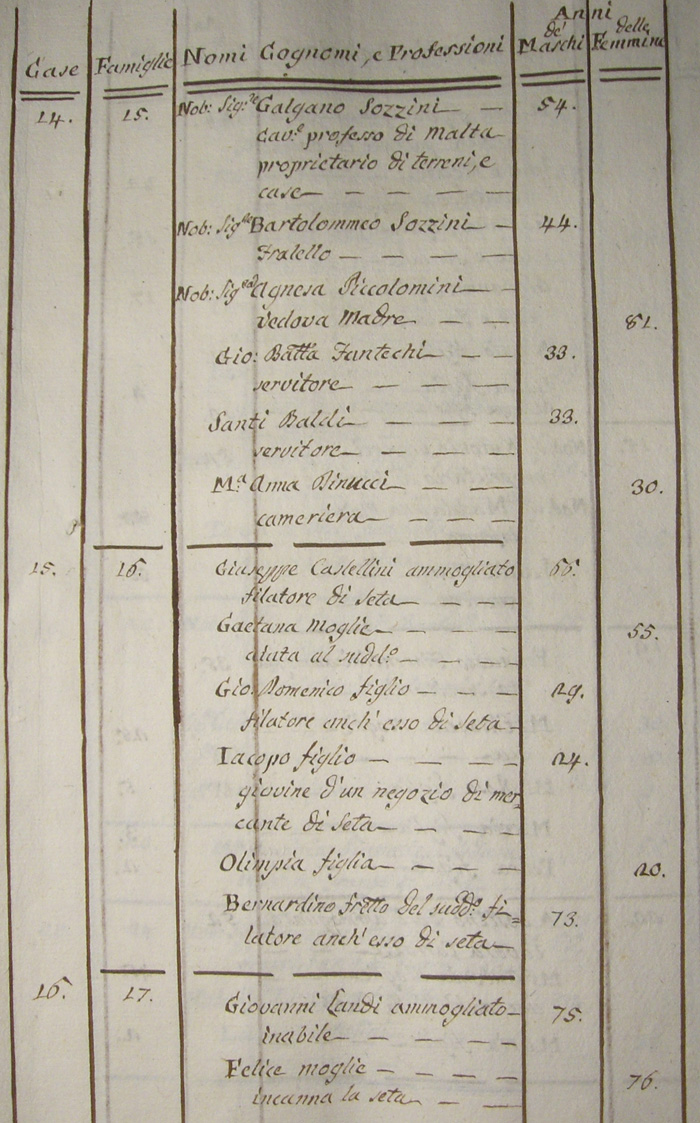 Anni
Case Famiglie Nomi Cognomi, e Professioni de' Maschi delle Femmine
14. 15. Nob: Sig:re Galgano Sozzini 54.
Cav:e professo di Malta
proprietario di terreni, e
case
Nob: Sig:re Bartolommeo Sozzini 44.
Fratello
Nob: Sig:ra Agnesa Piccolomini
vedova Madre 81.
Gio: Batta Fantechi 33.
servitore
Santi Baldi 33.
servitore
M:a Anna Binucci 30.
cameriera
15. 16. Giuseppe Castellini ammogliato
filatore di seta
Gaetana moglie 55.
aiuta al sudd:o
Gio: Domenico figlio 29.
filatore anch' esso di seta
Iacopo figlio 24.
giovine d'un negozio di mer-
cante di seta
Olimpia figlia 20.
Bernardino frello del sudd:o fi= 73.
latore anch' esso di seta
16. 17. Giovanni Landi ammogliato 75.
inabile
Felice moglie 76.
incanna la seta